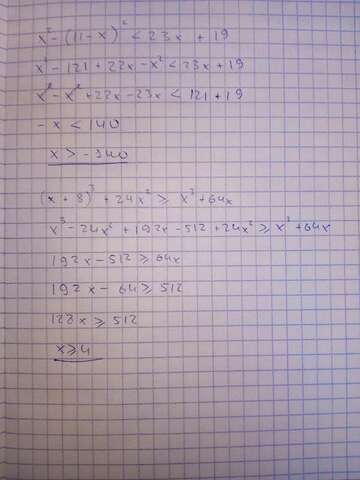 x² - (11 - x)² < 23x + 19
x² - 121 + 22x - x² < 23x + 19
x² - x² + 22x - 23x < 121 + 19
- x < 140
x > - 140
(x + 8)³ + 24x² ⩾ x³ + 64x
x³ - 24x² + 192x - 512 + 24x² ⩾ x³ + 64x
192x - 512 ⩾ 64x
192x - 64 ⩾ 512
128x ⩾ 512
x ⩾ 4